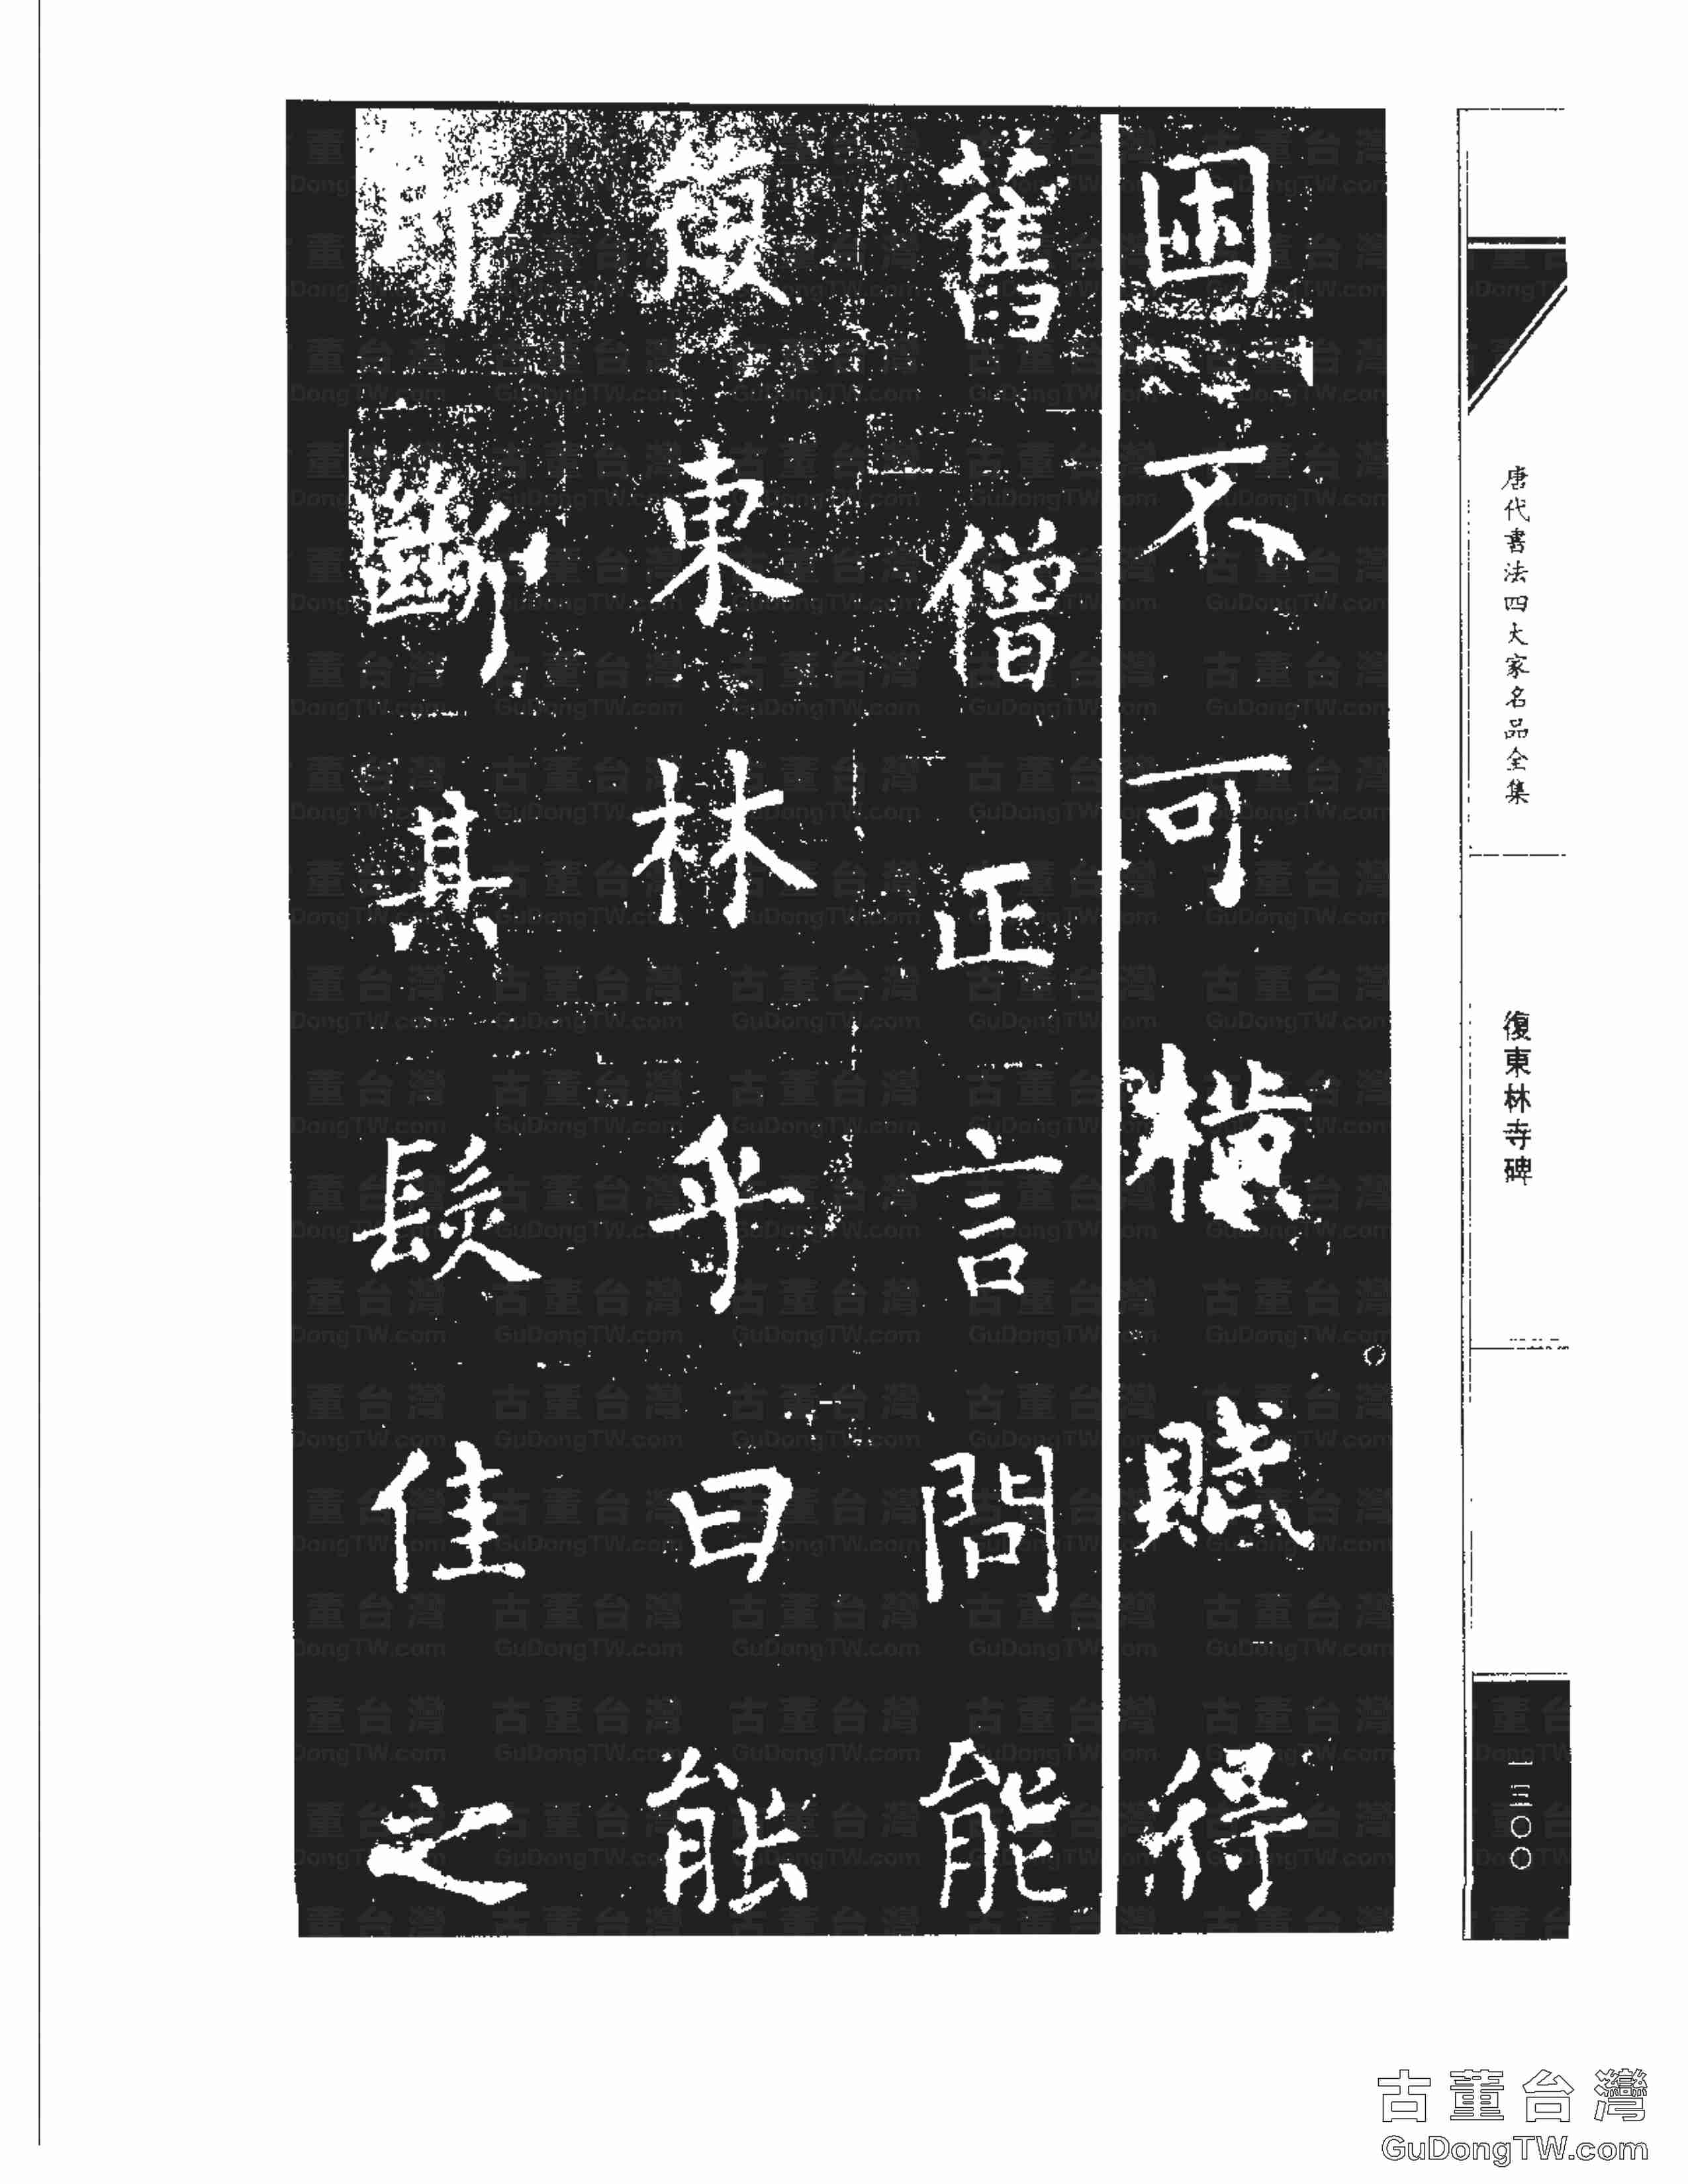 唐代書法四大家名品全集
復東林寺碑
一三〇〇
困不可橫賦得
舊僧正言問能
復東林乎曰能
即斷其髮佳之
古董台灣
GuDongTW.com